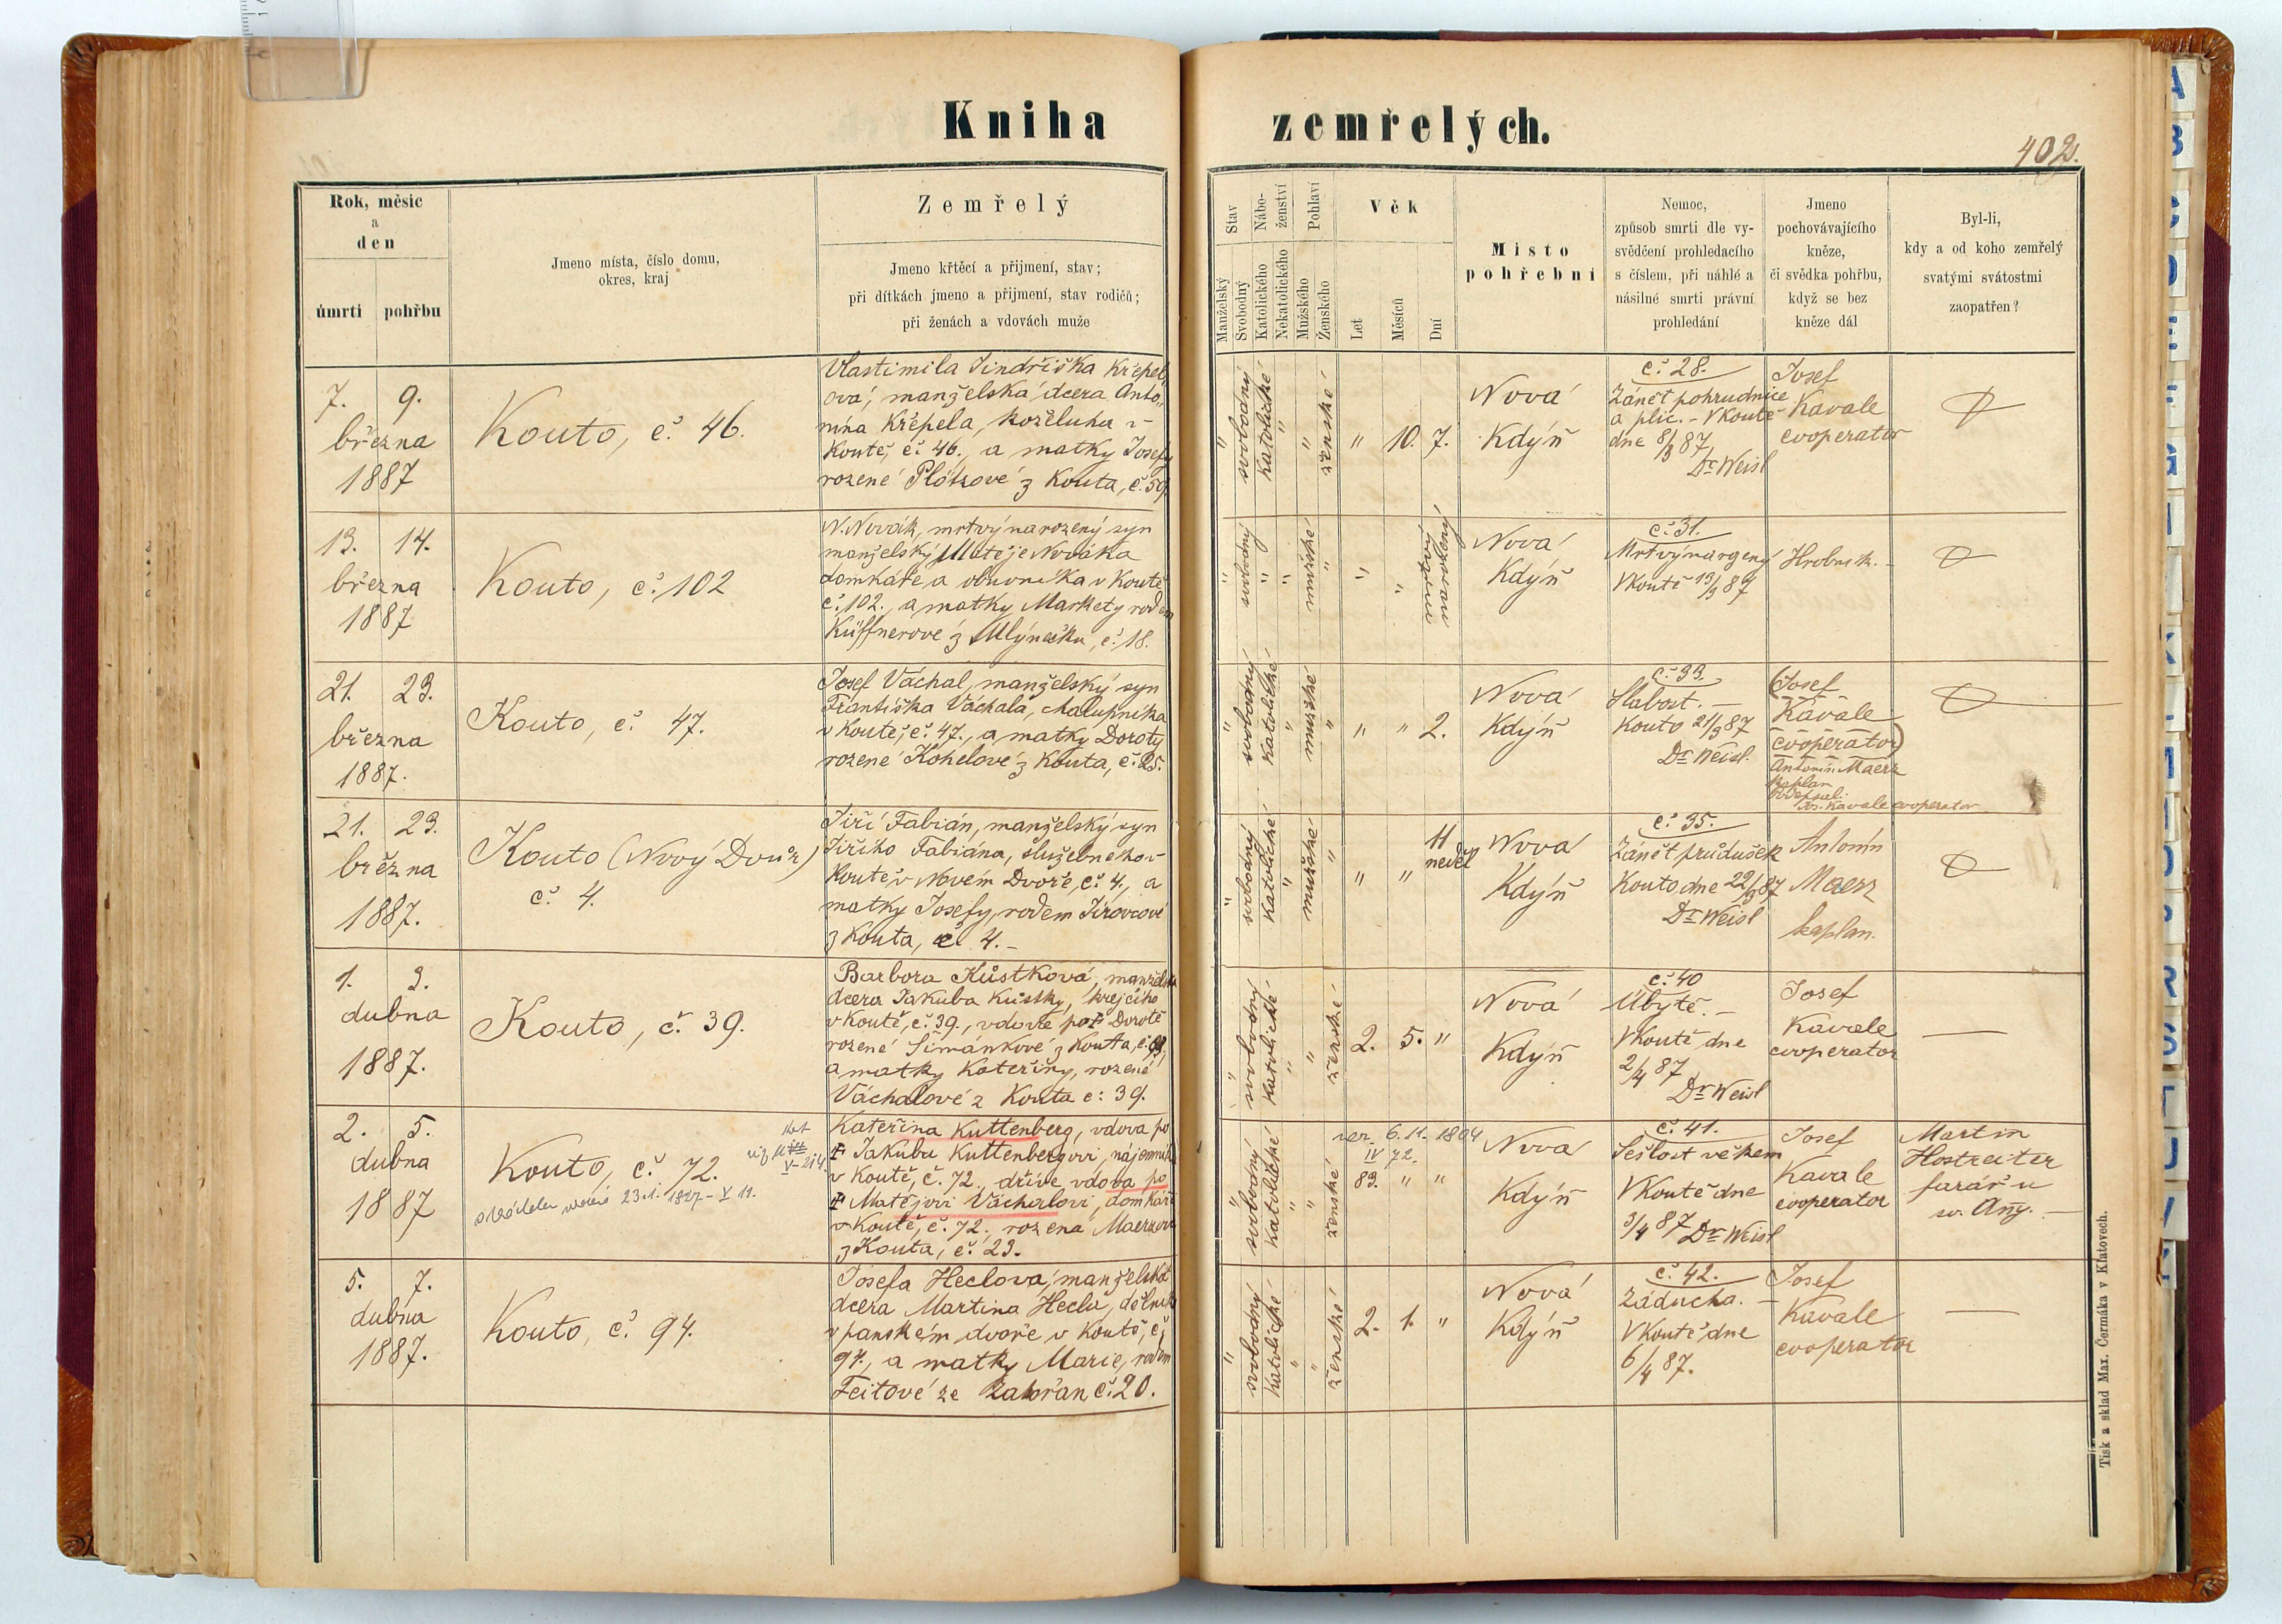 Kniha zemřelých.
402.
Rok, měsíc
a
den
úmrtí
pohřbu
Jmeno místa, číslo domu,
okres, kraj
Zemřelý
Jmeno křtěcí a přijmení, stav;
při dítkách jmeno a přijmení, stav rodičů;
při ženách a vdovách muže
Stav
Manželský
Svobodný
Nábo-
ženství
Katolického
Nekatolického
Pohlaví
Mužského
Ženského
Věk
Let
Měsíců
Dní
Místo
pohřební
Nemoc,
způsob smrti dle vy-
svědčení prohledacího
s číslem, při náhlé a
násilné smrti právní
prohledání
Jmeno
pochovávajícího
kněze,
či svědka pohřbu,
když se bez
kněze dál
Byl-li,
kdy a od koho zemřelý
svatými svátostmi
zaopatřen?
7. 9.
března
1887
Kouto, č. 46.
Vlastimila Jindřiška Křepel„
ová, manželská dcera Anto„
nína Křepela, koželuha v
Koutě, č. 46., a matky Josefy
rozené Plötzové z Kouta, č. 59.
" svobodný
katolické "
" ženské
" 10. 7.
Nová
Kdýň
č. 28.
Zánět pohrudnice
a plic. - V Koutě
dne 8/3 87
Dr Weisl
Josef
Kavale
cooperator
13. 14.
března
1887
Kouto, č. 102
N. Novák, mrtvýnarozený syn
manželský Matěje Nováka
domkáře a obuvníka v Koutě
č. 102., a matky Markety rodem
Küffnerové z Mlýnečku, č. 18.
" svobodný
" "
mužské "
" "
mrtvý
narozený
Nová
Kdýň
č. 31.
Mrtvýnarzený
V Koutě 13/3 87
Hrobník. -
21. 23.
března
1887.
Kouto, č. 47.
Josef Váchal, manželský syn
Františka Váchala, chalupníka
v Koutě, č. 47., a matky Doroty
rozené Kohelové z Kouta, č. 25.
" svobodný
katolické "
mužské "
" " 2.
Nová
Kdýň
č. 33.
Slabost. -
Kouto 21/3 87
Dr Weisl.
(Josef
Kavale
cooperator)
Antonín Maerz
kaplan
Jos. Kavale cooperator
21. 23.
března
1887.
Kouto (Nový Dvůr)
č. 4.
Jiří Fabián, manželský syn
Jiřího Fabiána, služebného v
Koutě v Novém Dvoře, č. 4., a
matky Josefy, rodem Jírovcové
z Kouta, č. 4. -
" svobodný
katolické "
mužské "
" "
11
neděl
Nová
Kdýň
č. 35.
Zánět průdušek
Kouto dne 22/3 87
Dr Weisl
Antonín
Maerz
kaplan.
1. 3.
dubna
1887.
Kouto, č. 39.
Barbora Kůstková, manželská
dcera Jakuba Kůstky, krejčího
v Koutě, č. 39., vdovce po † Dorotě
rozené Šimánkové z Kouta, č. 93,
a matky Kateřiny, rozené
Váchalové z Kouta č: 39.
" svobodný
katolické "
" ženské
2. 5. "
Nová
Kdýň
č. 40
Úbytě. -
V Koutě dne
2/4 87
Dr Weisl
Josef
Kavale
cooperator
2. 5.
dubna
1887
Kouto, č. 72.
V-214.
23.1. 1827 - V 11.
Kateřina Kuttenberg, vdova po
† Jakubu Kuttenbergovi, nájemníku
v Koutě, č. 72., dříve vdova po
† Matějovi Váchalovi, domkáři
v Koutě, č. 72., rozená Maerzová
z Kouta, č. 23.
" svobodný
katolické "
" ženské
nar. 6.11. 1804
IV 72.
83. " "
Nová
Kdýň
č. 41.
Sešlost věkem
V Koutě dne
3/4 87 Dr Weisl
Josef
Kavale
cooperator
Martin
Hostreiter
farář u
sv. Ang. -
5. 7.
dubna
1887.
Kouto, č. 94.
Josefa Heclová, manželská
dcera Martina Hecla, dělníka
v panském dvoře v Koutě, č.
94., a matky Marie, rodem
Feitové ze Zahořan č. 20.
" svobodný
katolické "
" ženské
2. 1. "
Nová
Kdýň
č. 42.
Záducha. -
V Koutě dne
6/4 87.
Josef
Kavale
cooperator
Tisk a sklad Max. Čermáka v Klatovech.